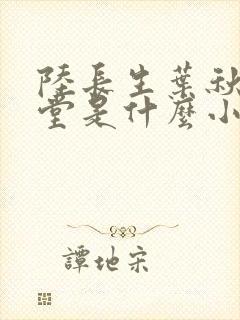 陸長生葉秋
堂是什麼小
譚地宋